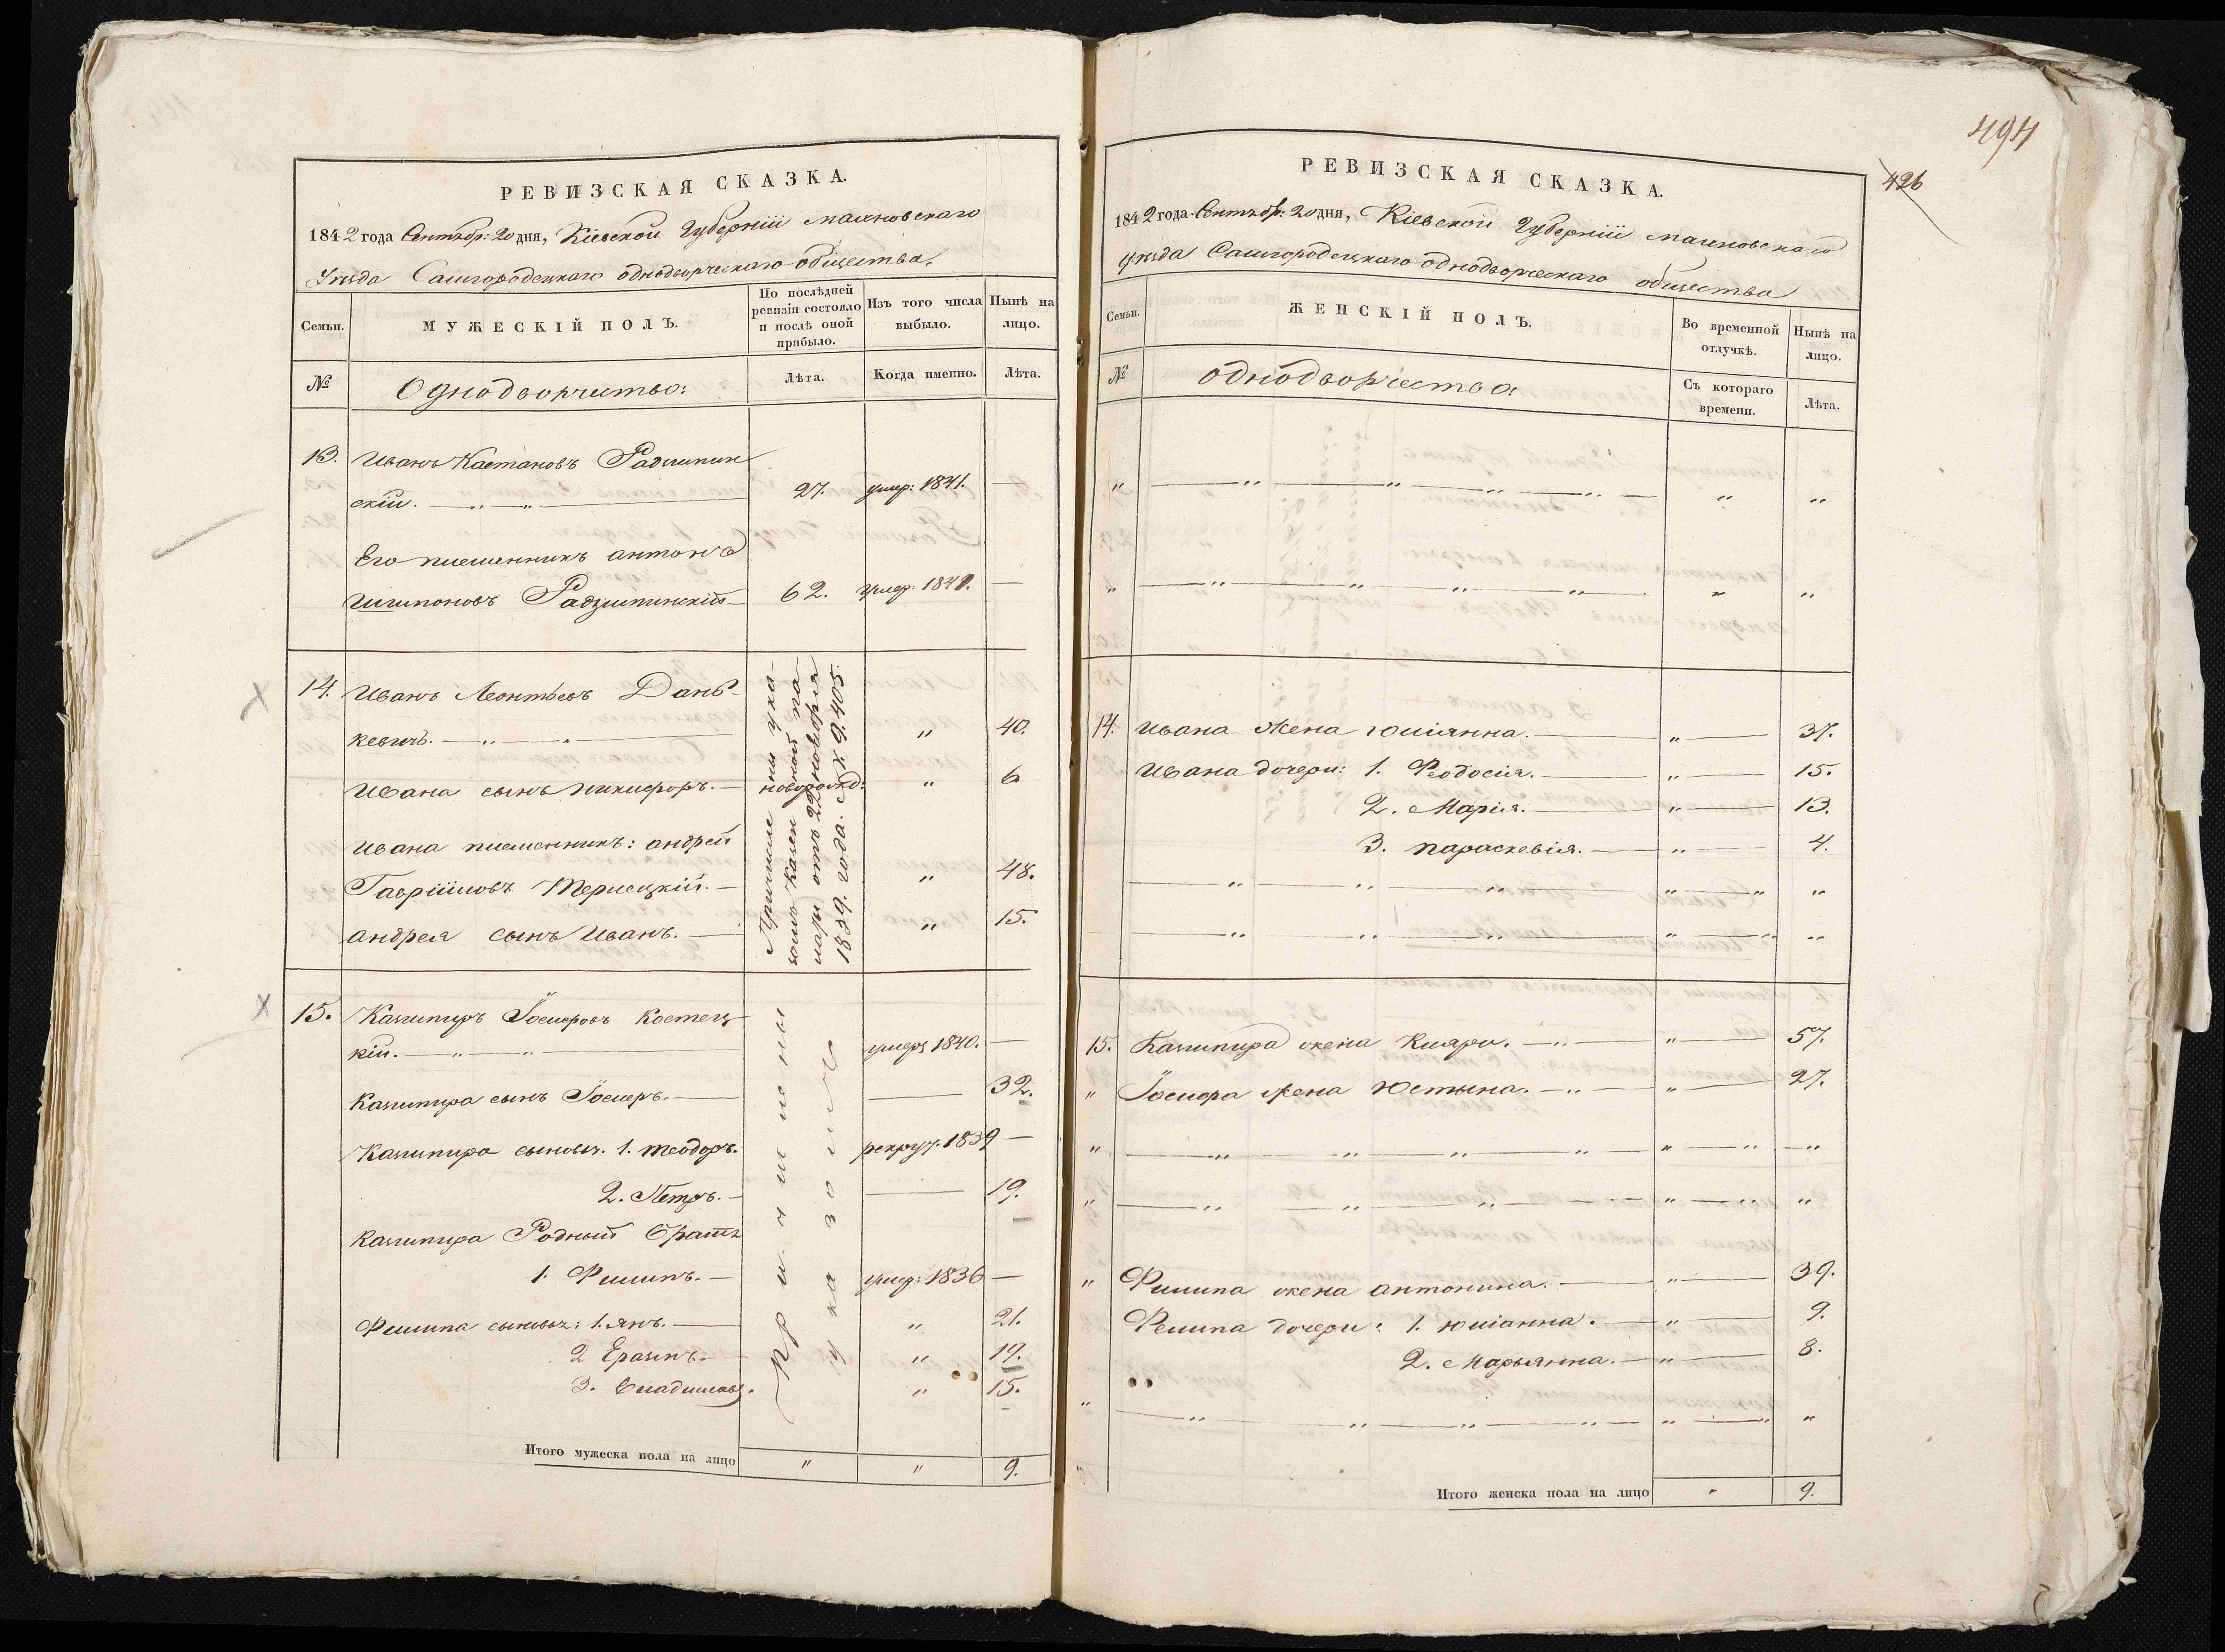 РЕВИЗСКАЯ СКАЗКА.
1842 года Сентябр: 20 дня, Кіевской Губерніи Махновскаго
Уѣзда Самгородецкаго однодворческаго общества.
Семьи.
МУЖЕСКІЙ ПОЛЪ.
По послѣдней ревизіи состояло и послѣ оной прибыло.
Изъ того числа выбыло.
Нынѣ на лицо.
№
Однодворчество:
Лѣта.
Когда именно.
Лѣта.
13. Иванъ Каетановъ
скій. 27. умер: 1841. —
Его племенникъ антонъ
62. умер: 184
14. Иванъ Леонтьевъ Дань-
кевичъ. — " — " 40.
Ивана сынъ Никифоръ. — новорожд: " 6
Ивана племенникъ: андрей
Гавріиловъ " 48.
андрея сынъ Иванъ. — " 15.
Причислены ука-
зомъ Казен ной па-
латы отъ 22 новобрія
1839. года. № 9.405.
15. Казимиръ Іосифовъ Костец-
кій. — " — " умеръ 1840. —
Казимира сынъ Іосифъ. — — 32.
Казимира сыновья. 1. теодоръ. рекрут. 1839 —
2. Петръ. — — 19.
Казимира Родный Братъ
1. Филипъ. — умер: 1836 —
Филипа сыновья: 1. янъ. — " 21.
2 Еразмъ. — " 19.
3. Владиславъ. " 15.
Итого мужеска пола на лицо " " 9.
494
426
РЕВИЗСКАЯ СКАЗКА.
1842 года. Сентябр: 20 дня, Кіевской Губерніи Махновскаго
уѣзда Самгородецкаго однодворческаго общества
Семьи.
ЖЕНСКІЙ ПОЛЪ.
Во временной отлучкѣ.
Нынѣ на лицо.
№
однодворчества:
Съ котораго времени.
Лѣта.
14. Ивана Жена Юліянна. — " — 37.
Ивана дочери: 1. Феодосія. — " — 15.
2. Марія. — " — 13.
3. параскевія. — " — 4.
15. Казимира жена Кляра. — " — 57.
" Іосифа жена Юстына. — " — 27.
" Филипа жена антонина. — " — 39.
Филипа дочери: 1. юліанна. — " — 9.
2. Марьянна. — " — 8.
Итого женска пола на лицо " 9.